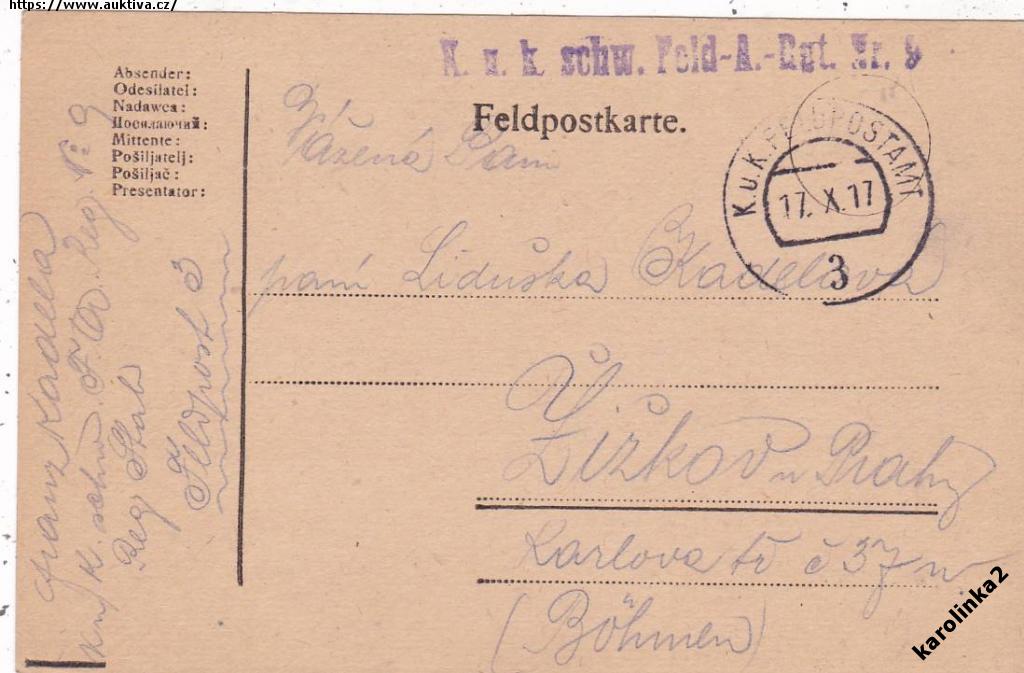 https://www.auktiva.cz/
K. u. k. schw. Feld-A.-Rgt. Nr. 9
Absender:
Odesílatel:
Nadawca:
Посилаючий:
Mittente:
Pošiljatelj:
Pošiljač:
Presentator:
Feldpostkarte.
K.u.K. FELDPOSTAMT
17. X. 17
3
Vážená Paní
paní Liduška Kadelová
Žižkov u Prahy
Karlova tř č 37
(Böhmen)
Franz Kadella
k. schw. F. A. Reg. Nº 9
Reg Stab
Feldpost 3
karolinka2